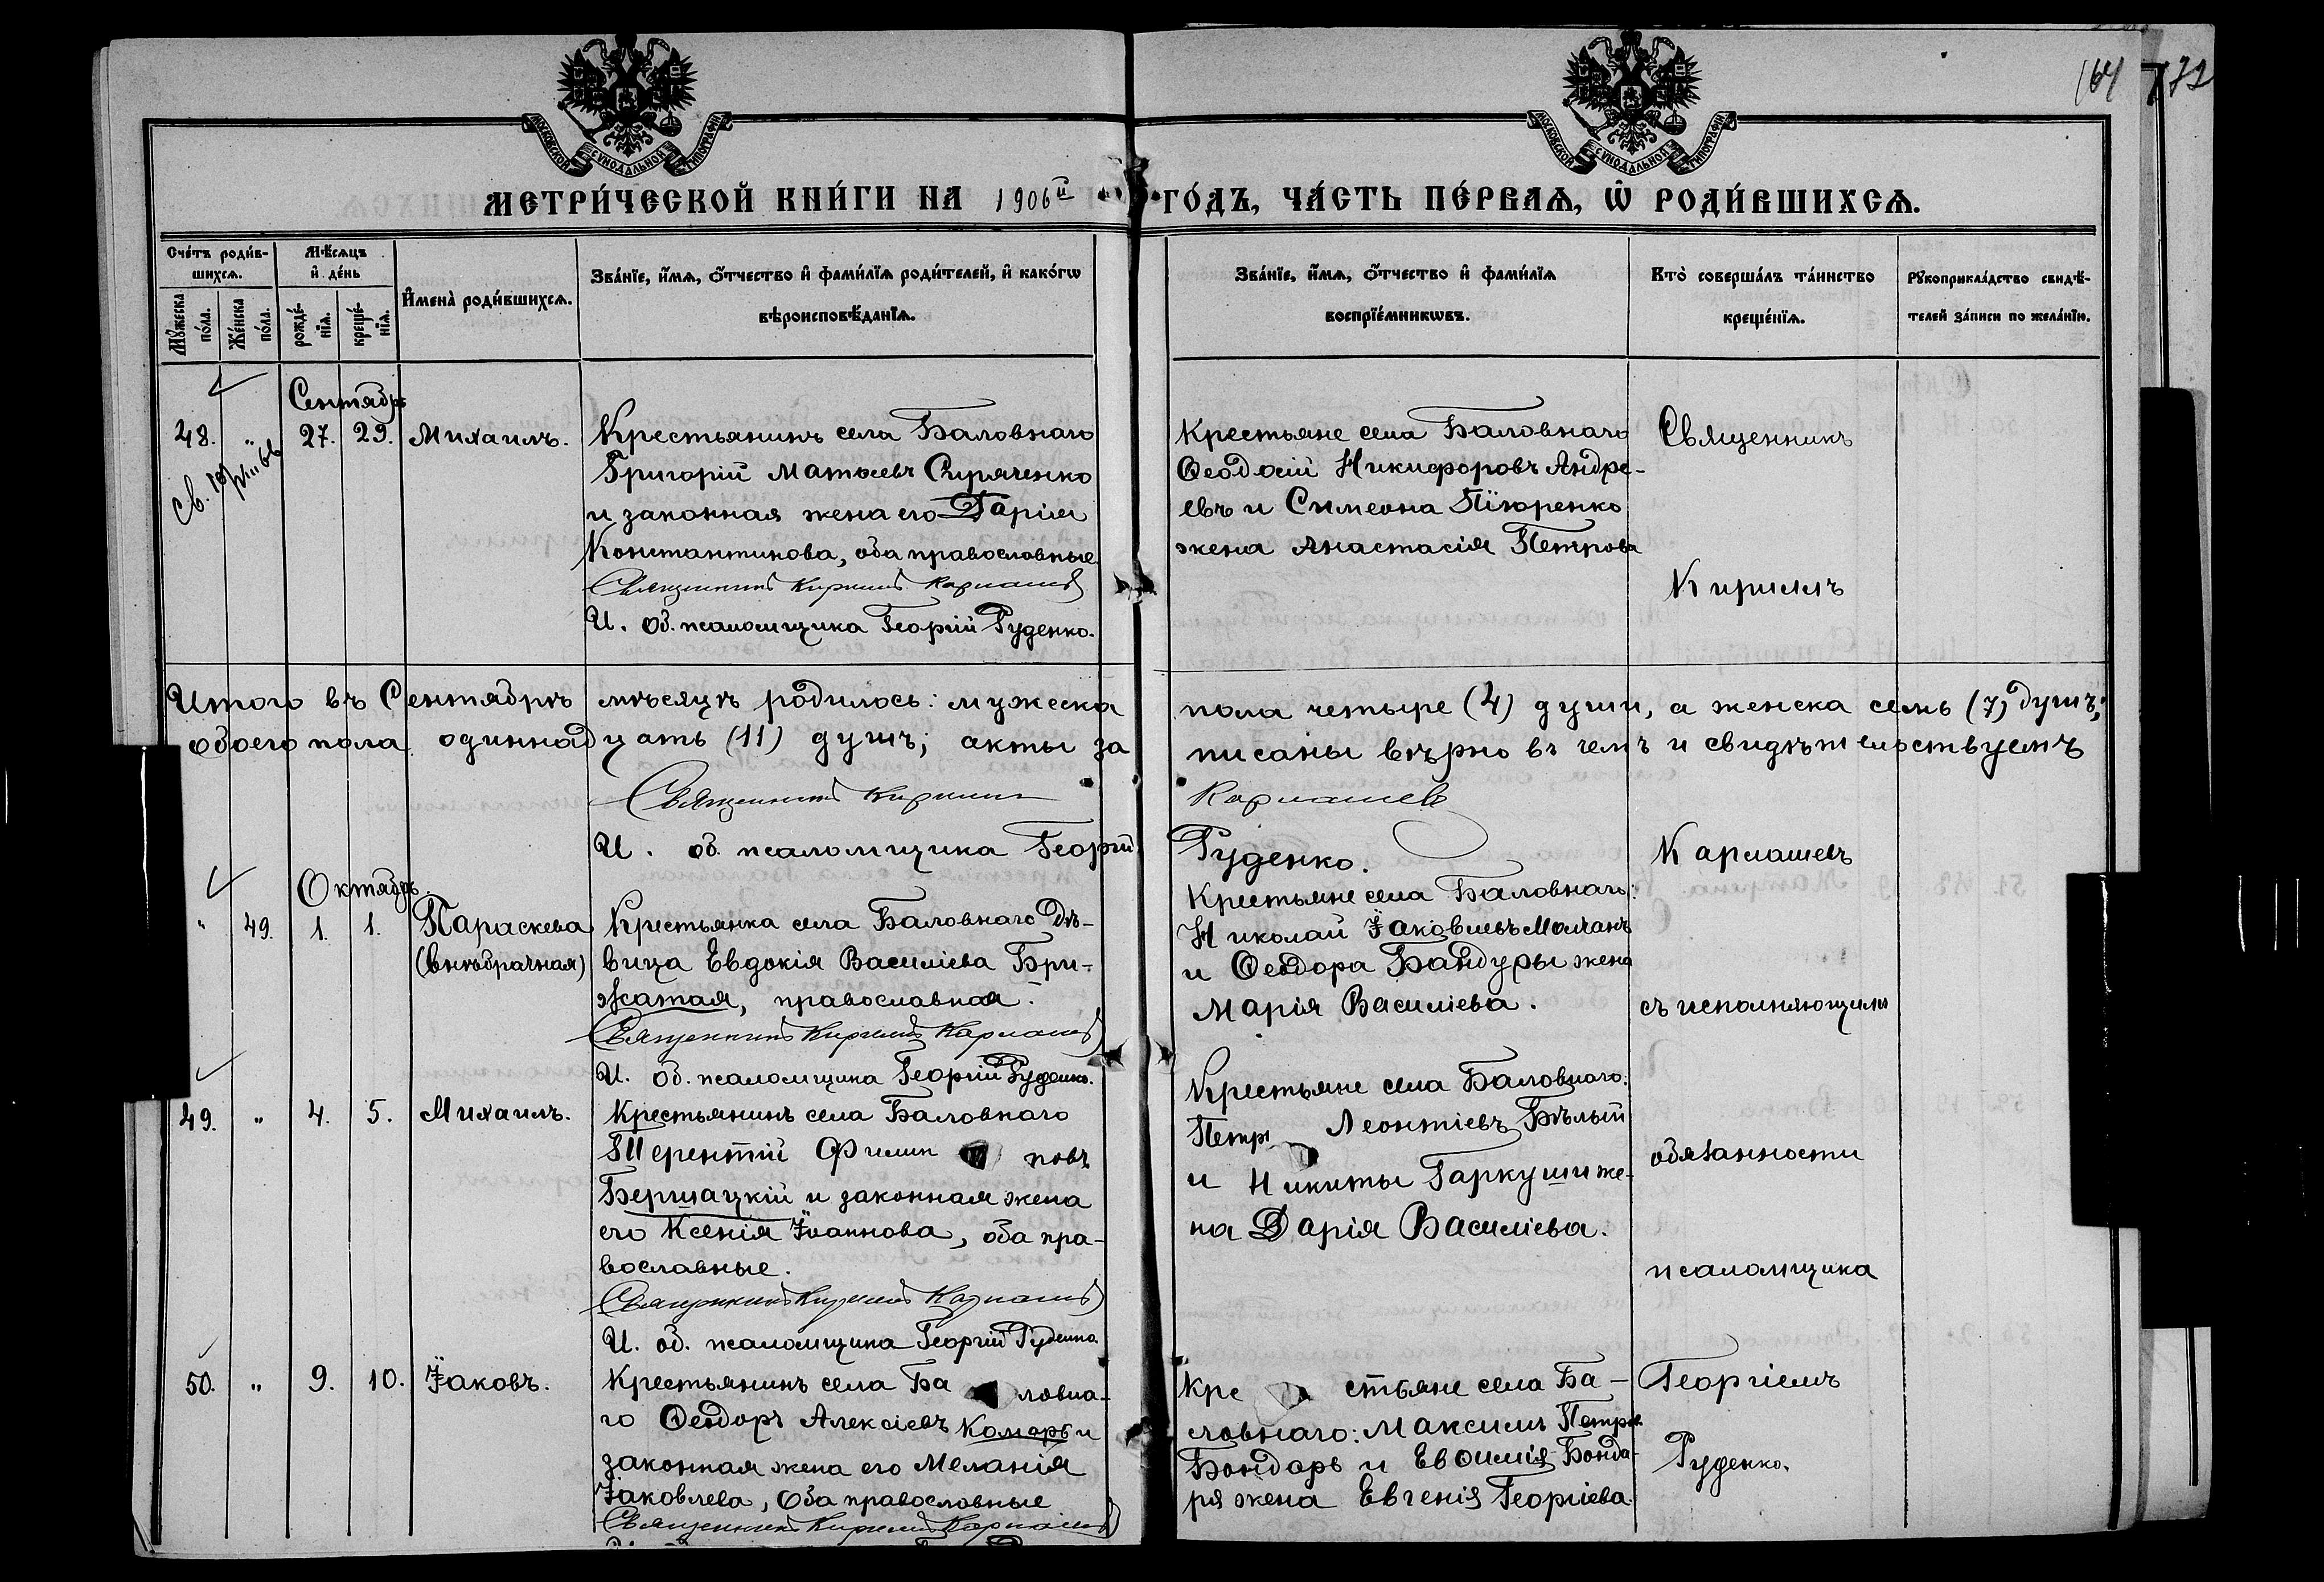 164 172
МОСКОВСКОЙ СѴНОДАЛЬНОЙ ТИПОГРАФІИ
МОСКОВСКОЙ СѴНОДАЛЬНОЙ ТИПОГРАФІИ
МЕТРИ́ЧЕСКОЙ КНИ́ГИ НА 1906й ГО́ДЪ, ЧА́СТЬ ПЕ́РВАѦ, Ѡ҆ РОДИ́ВШИХСѦ.
Сче́тъ роди́в-
шихсѧ.
Мꙋ́жеска по́ла.
Же́нска по́ла.
Мѣ́сѧцъ
и҆ де́нь
рожде́-
нїѧ.
креще́-
нїѧ.
И҆мена̀ роди́вшихсѧ.
Зва́нїе, и҆́мѧ, ѻ҆́тчество и҆ фами́лїѧ роди́телей, и҆ како́гѡ
вѣроисповѣ́данїѧ.
Зва́нїе, и҆́мѧ, ѻ҆́тчество и҆ фами́лїѧ
воспрїе́мникѡвъ.
Кто̀ соверша́лъ та́инство
креще́нїѧ.
Рꙋкоприкла́дство свидѣ́-
телей за́писи по жела́нїю.
Сентябрь
48. " 27. 29. Михаилъ.
Св. 19
Крестьянинъ села Баловнаго
Григорій Матѳеевъ Скряченко
и законная жена его Дарія
Константинова, оба православные
Священникъ Кириллъ Кармашевъ
И. об. псаломщика Георгій Руденко.
Крестьяне села Баловнаго
Ѳеодосій Никифоровъ Андре-
евъ и Симеона Пїюренко
жена Анастасія Петрова
Священникъ
Кириллъ
Итого въ Сентябрѣ мѣсяцѣ родилось: мужеска пола четыре (4) души, а женска семь (7) душъ,
обоего пола одиннадцать (11) душъ; акты за писаны вѣрно въ чемъ и свидѣтельствуемъ
Священникъ Кириллъ Кармашевъ
И. об. псаломщика Георгій Руденко.
Кармашевъ
Октябрь.
" 49. 1. 1. Параскева
(внѣбрачная)
Крестьянка села Баловнаго Дѣ-
вица Евдокія Василіева Бри-
жатая, православная.
Священникъ Кириллъ Кармашевъ
И. об. псаломщика Георгій Руденко.
Крестьяне села Баловнаго:
Николай Іаковлевъ Молчанъ
и Ѳеодора Бандуры жена
Марія Василіева.
съ исполняющимъ
49. " 4. 5. Михаилъ.
Крестьянинъ села Баловнаго
Терентій Филип повъ
Бершацкій и законная жена
его Ксенія Іоаннова, оба пра-
вославные.
Священникъ Кириллъ Кармашевъ
И. об. псаломщика Георгій Руденко
Крестьяне села Баловнаго:
Петръ Леонтіевъ Бѣлый
и Никиты Гаркуши же-
на Дарія Василіева.
обязанности
псаломщика
50. " 9. 10. Іаковъ.
Крестьянинъ села Ба ловна-
го Ѳеодоръ Алексіевъ Комаръ и
законная жена его Меланія
Іаковлева, Оба православные
Священникъ Кириллъ Кармашевъ
Кре стьяне села Ба-
ловнаго: Максимъ Петровъ
Бондарь и Евѳимія Бонда-
ря жена Евгенія Георгіева.
Георгіемъ
Руденко.